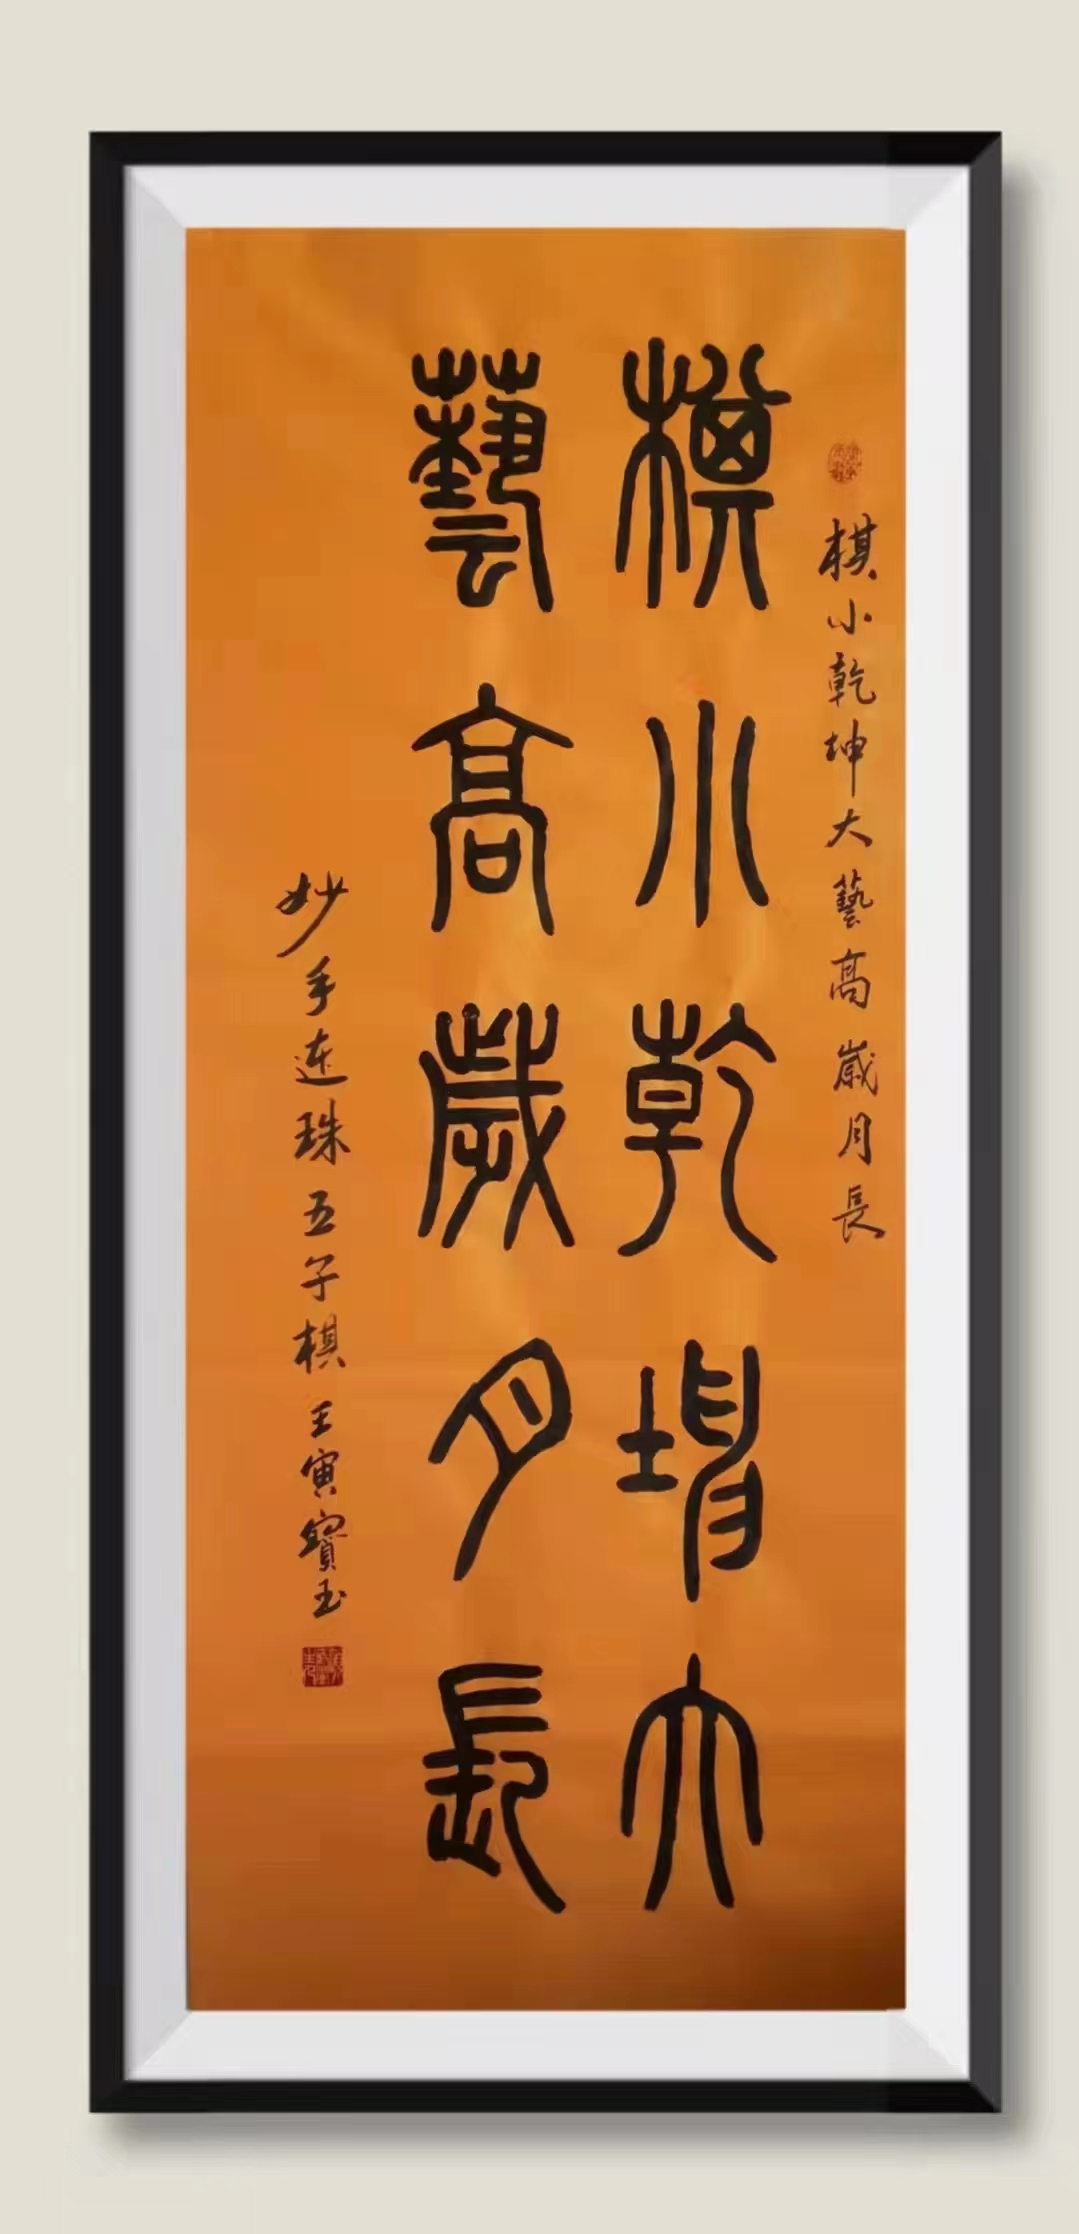 棋小乾坤大藝高歲月長
棋小乾坤大
藝高歲月長
妙手连珠五子棋 壬寅寶玉